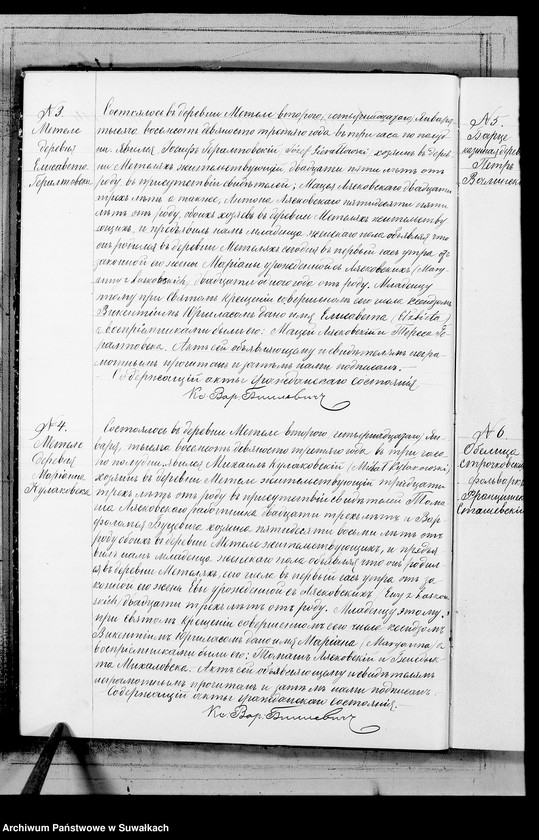 № 3.
Метеле
деревня
Елисавета
Гералтовска
Состоялось въ деревни Метеле второго /четырнадцатаго/ Января
тысяча восемсотъ девяносто третьяго года въ три часа по полуд-
ни. Явился Іосифъ Гералтовскій /Józef Gierałtowski/ хозяинъ въ дерев-
ни Метеляхъ жительствующій двадцати пяти лѣтъ отъ
роду, въ присутствіи свидѣтелей; Мацея Ляковскаго двадцати
трехъ лѣтъ а также, Антона Ляковскаго пятидесяти пяти
лѣтъ отъ роду, обоихъ хозяевъ въ деревни Метеляхъ жительству
ющихъ, и предъявилъ намъ младенца женскаго пола объявляя что
оно родился въ деревни Метеляхъ сегодня въ первый часъ утра отъ
законной его жены Маріанны урожденной съ Ляковскихъ /Mary-
anny z Łakowskich/, двадцати одного года отъ роду. Младенцу
этому при Святомъ Крещеніи совершенномъ сего числа Ксендзомъ
Викентіемъ Юргиласомъ дано имя Елисавета (Elżbieta)
а воспріемниками были его: Мацей Ляковскій и Тереса Ге-
ралтовска. Актъ сей объявляющему и свидѣтелямъ негра-
мотнымъ прочитанъ и затѣмъ нами подписанъ.-
Содержащій акты гражданскаго состоянія
Кс. Вар.
№ 4.
Метеле
деревня
Маріанна
Кулаковска
Состоялось въ деревни Метеле второго /четырнадцатаго/ Ян-
варя, тысяча восемсотъ девяносто третьяго года въ три часа
по полудни. Явился Михаилъ Кулаковскій (Michał Kułakowski)
хозяинъ въ деревни Метеле жительствующій тридцати
трехъ лѣтъ отъ роду въ присутствіи свидѣтелей Тома-
ша Ляковскаго работника двадцати трехъ лѣтъ и Вар
фоломея хозяина пятидесяти восьми лѣтъ отъ
роду обоихъ въ деревни Метеле жительствующихъ, и предъя
вилъ намъ младенца женскаго пола объявляя что оно родил
ся въ деревни Метеляхъ, сего числа въ первый часъ утра отъ за
конной его жены Евы урожденной съ Ляковскихъ /Ewy z Łakow
skich/ двадцати трехъ лѣтъ отъ роду. Младенцу этому
при святомъ крещеніи совершенномъ сего числа Ксендзомъ
Викентіемъ Юргиласомъ дано имя Маріанна (Maryanna) а
воспріемниками были его: Томашъ Ляковскій и Бенедык
та Михаловска. Актъ сей объявляющему и свидѣтелямъ
неграмотнымъ прочитанъ и затѣмъ нами подписанъ.-
Содержащій акты гражданскаго состоянія.
Кс. Вар.
№ 5
Петръ
№ 6
Обелица
фольваркъ
Францишекъ
Сташевскій
Archiwum Państwowe w Suwałkach